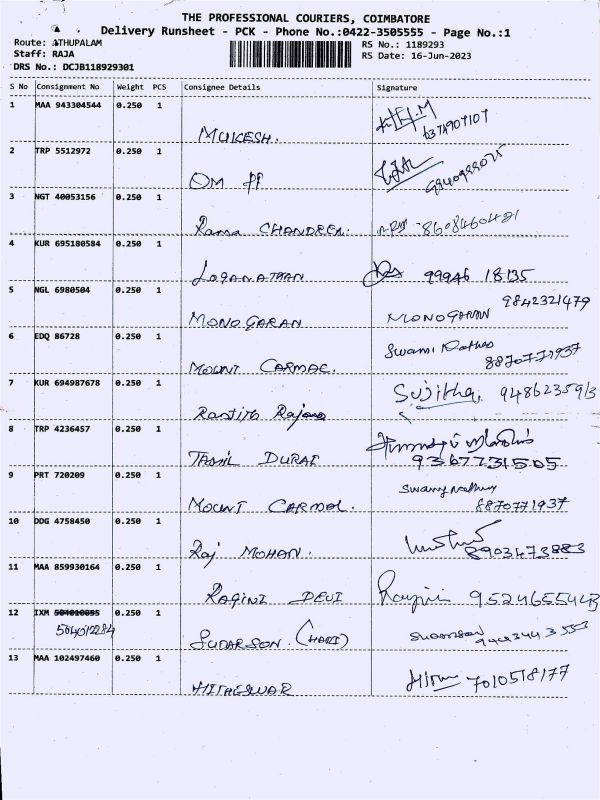 THE PROFESSIONAL COURIERS, COIMBATORE
Delivery Runsheet - PCK - Phone No.:0422-3505555 - Page No.:1
Route: ATHUPALAM
Staff: RAJA
DRS No.: DCJB118929301
RS No.: 1189293
RS Date: 16-Jun-2023
S No Consignment No Weight PCS Consignee Details Signature
1 MAA 943304544 0.250 1
MUKESH. 6374907107
2 TRP 5512972 0.250 1
OM
3 NGT 40053156 0.250 1
Rama CHANDREN. 8608460421
4 KUR 695180584 0.250 1
LOGANATHAN 99946 18135
5 NGL 6980504 0.250 1
9842321479
MONOGARAN MONOGARAN
6 EDQ 86728 0.250 1
Swami
MOUNT CARMAL. 8870771937
7 KUR 694987678 0.250 1
Sujitha, 9486235913
8 TRP 4236457 0.250 1
TAMIL DURAI 9367731505
9 PRT 720209 0.250 1
MOUNT CARMAL. 8870771937
10 DDG 4758450 0.250 1
Raj MOHAN. 8903473883
11 MAA 859930164 0.250 1
RAGINI DEVI 
12 IXM 0.250 1
504012284
SUDARSON. (HARI)
13 MAA 102497460 0.250 1
HITHESWAR 7010518177